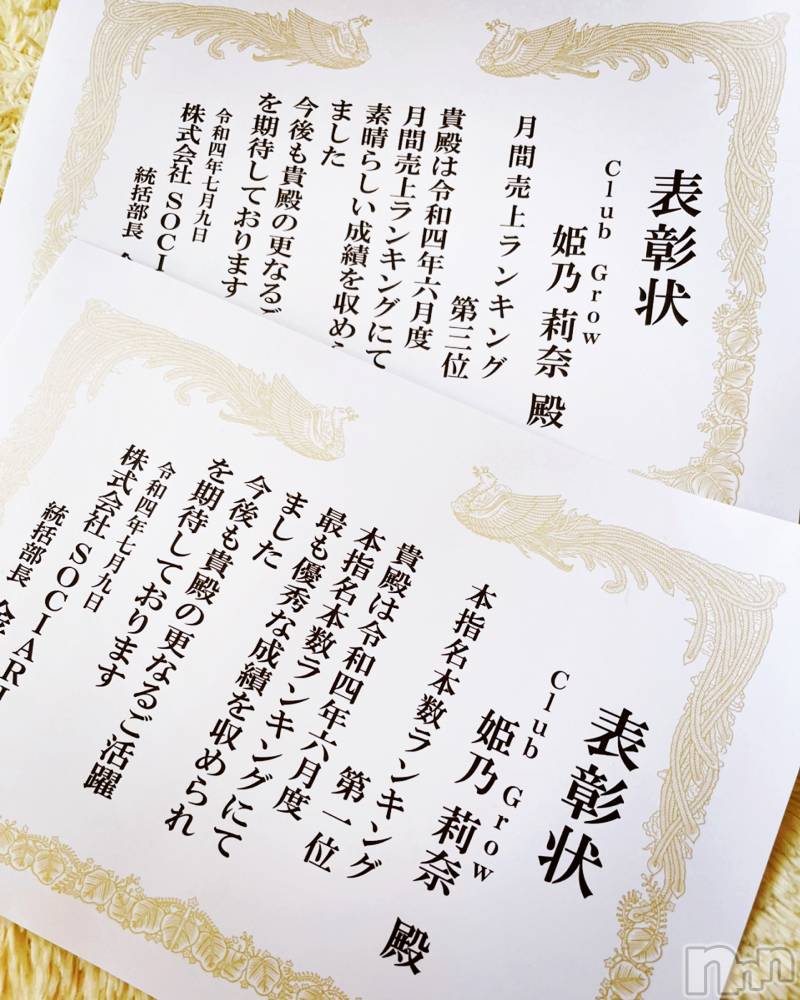 表彰状
Club Grow
姫乃 莉奈 殿
月間売上ランキング
第三位
貴殿は令和四年六月度
月間売上ランキングにて
素晴らしい成績を収め
ました
今後も貴殿の更なるご
を期待しております
令和四年七月九日
株式会社 SOCI
統括部長
表彰状
Club Grow
姫乃 莉奈 殿
本指名本数ランキング
第一位
貴殿は令和四年六月度
本指名本数ランキングにて
最も優秀な成績を収められ
ました
今後も貴殿の更なるご活躍
を期待しております
令和四年七月九日
株式会社 SOCIARI
統括部長 金